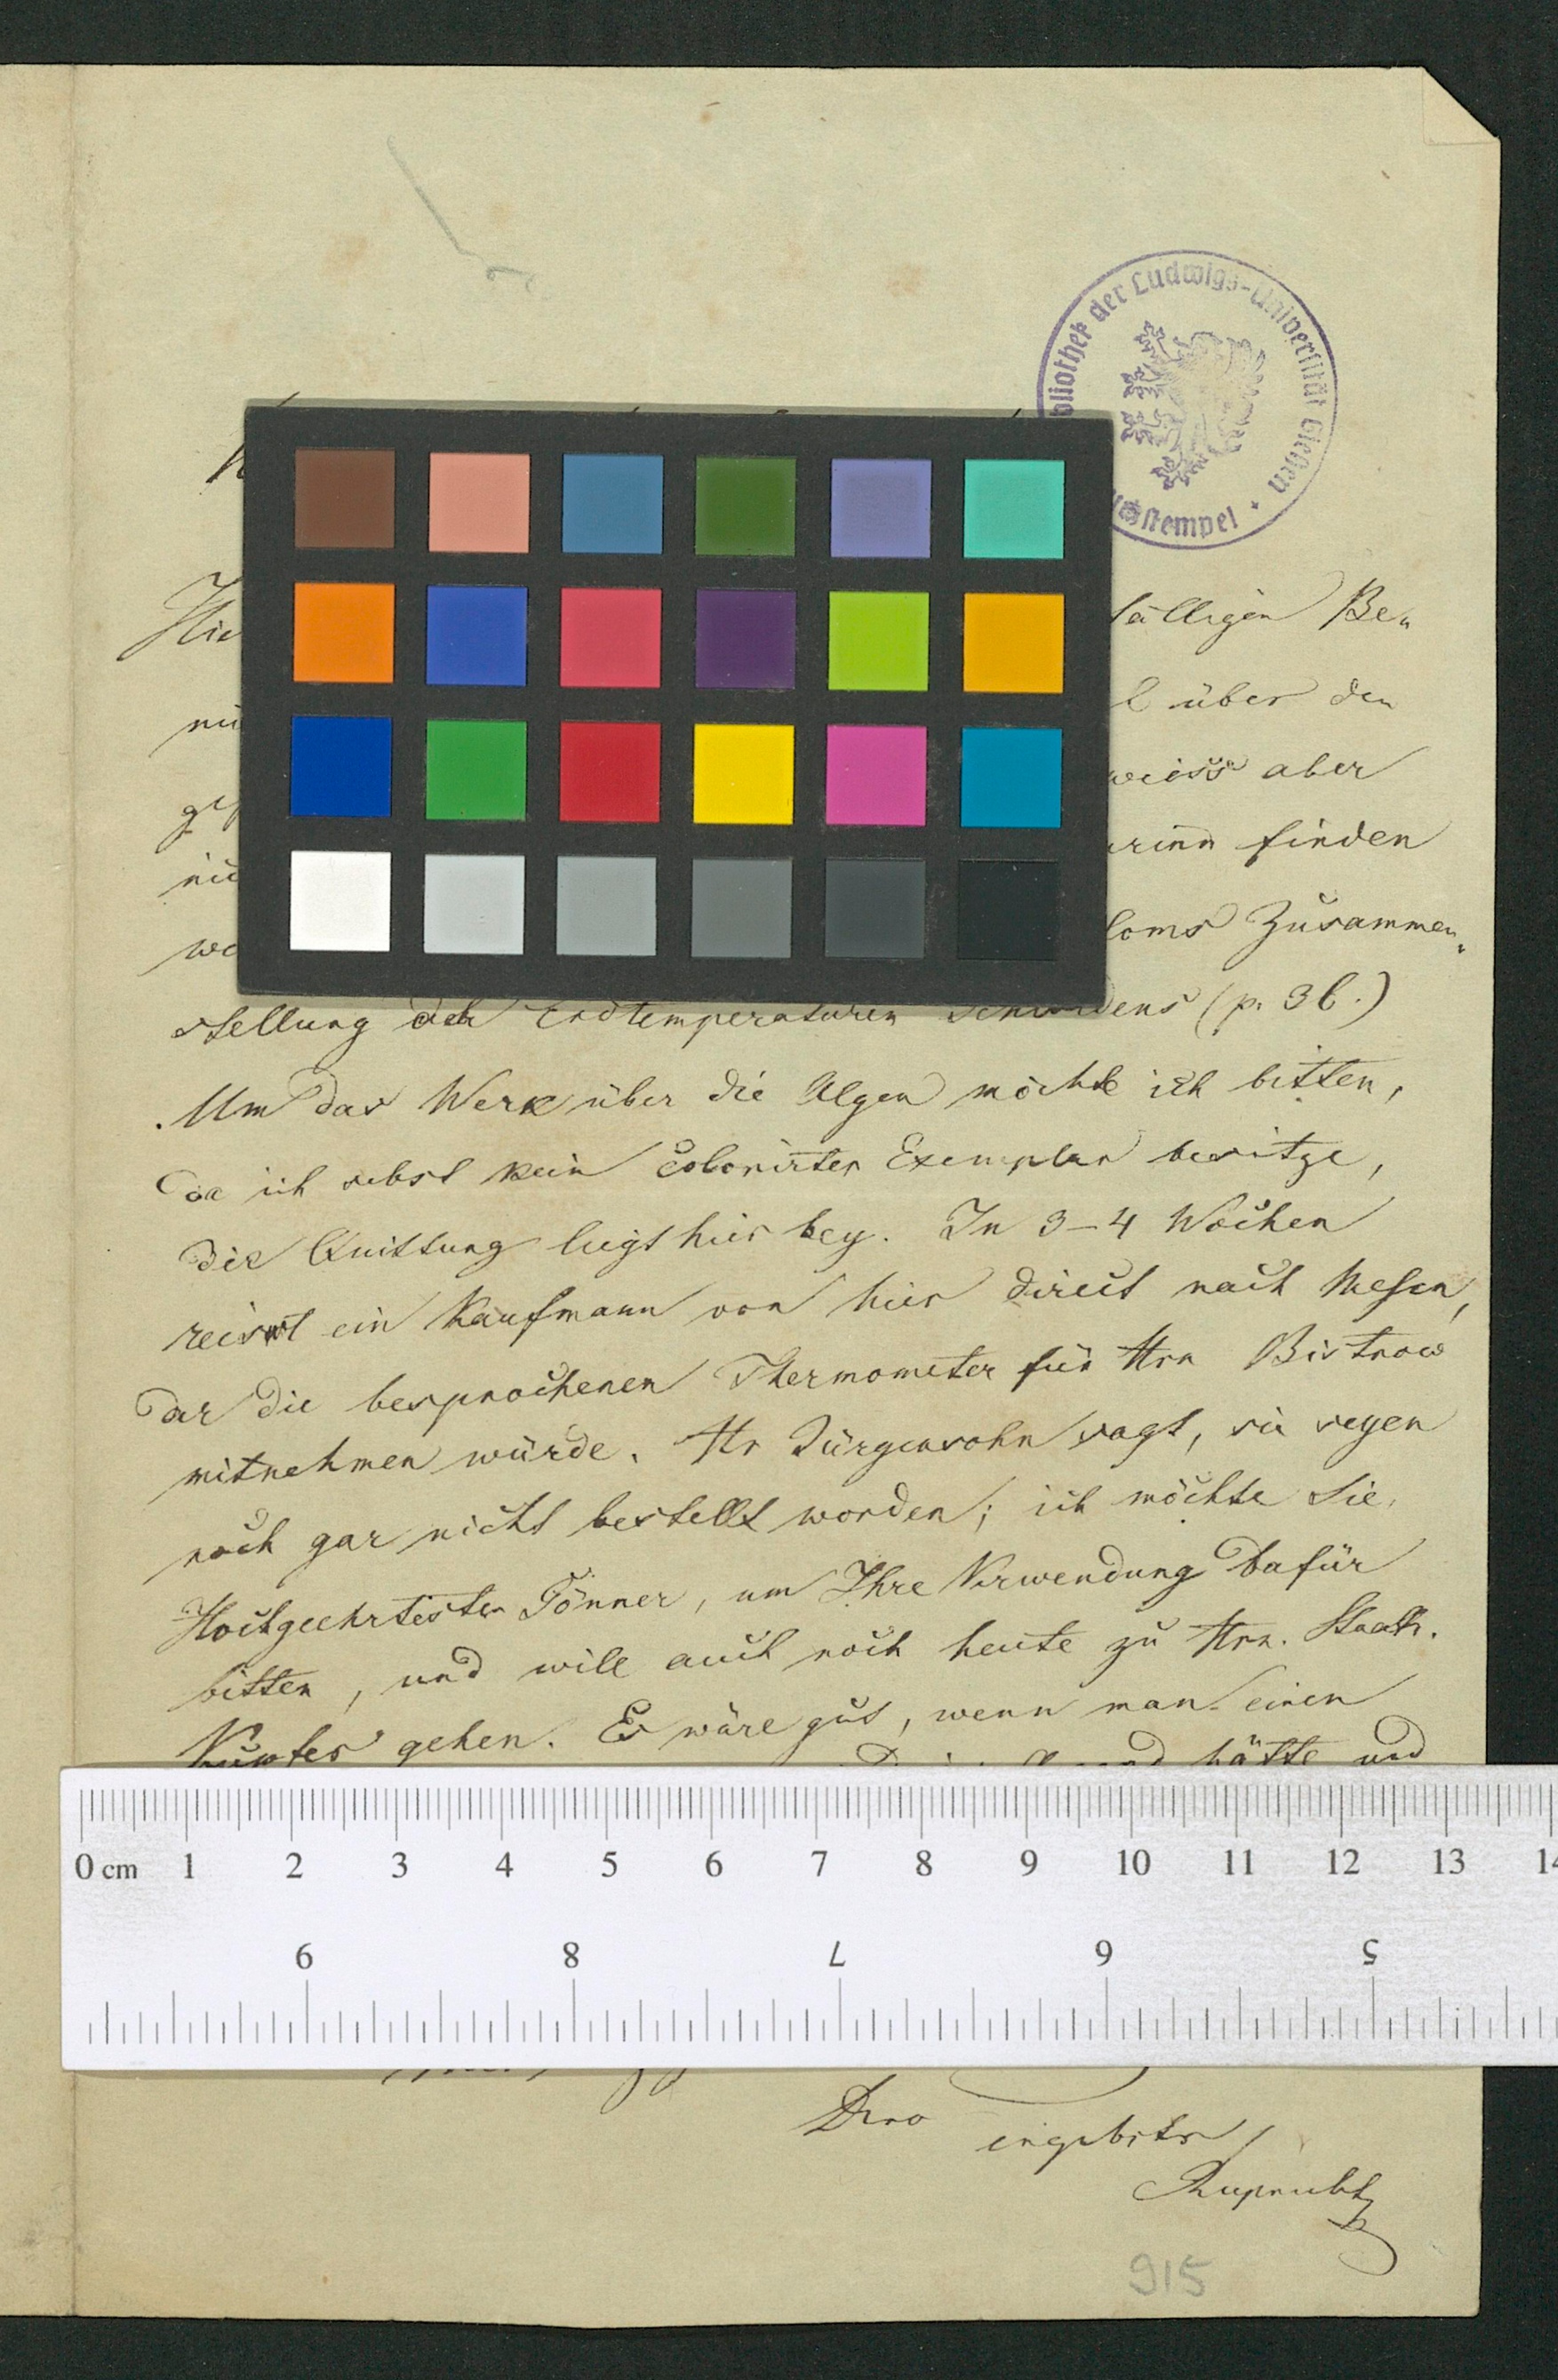 Bibliothek der Ludwigs-Universität Gießen
stempel
fälligen Be-
über den
weiss aber
finden
Zusammen-
stellung der Erdtemperaturen Schwedens (p. 36.)
Um das Werk über die Algen möchte ich bitten,
da ich selbst kein colorirtes Exemplar besitze,
die Quittung liegt hier bey. In 3–4 Wochen
reist ein Kaufmann von hier direct nach Mesen,
der die besprochenen Thermometer für Hrn Bistrow
mitnehmen würde. Hr Jürgensohn sagt, sie seyen
noch gar nicht bestellt worden; ich möchte Sie,
Hochgeehrtester Gönner, um Ihre Verwendung dafür
bitten, und will auch noch heute zu Hrn. Staatsr.
Kupfer gehen. Es wäre gut, wenn man einen
hätte und
0 cm 1 2 3 4 5 6 7 8 9 10 11 12 13 14
9 8 7 6 5
Dero
ergebster
Ruprecht
915